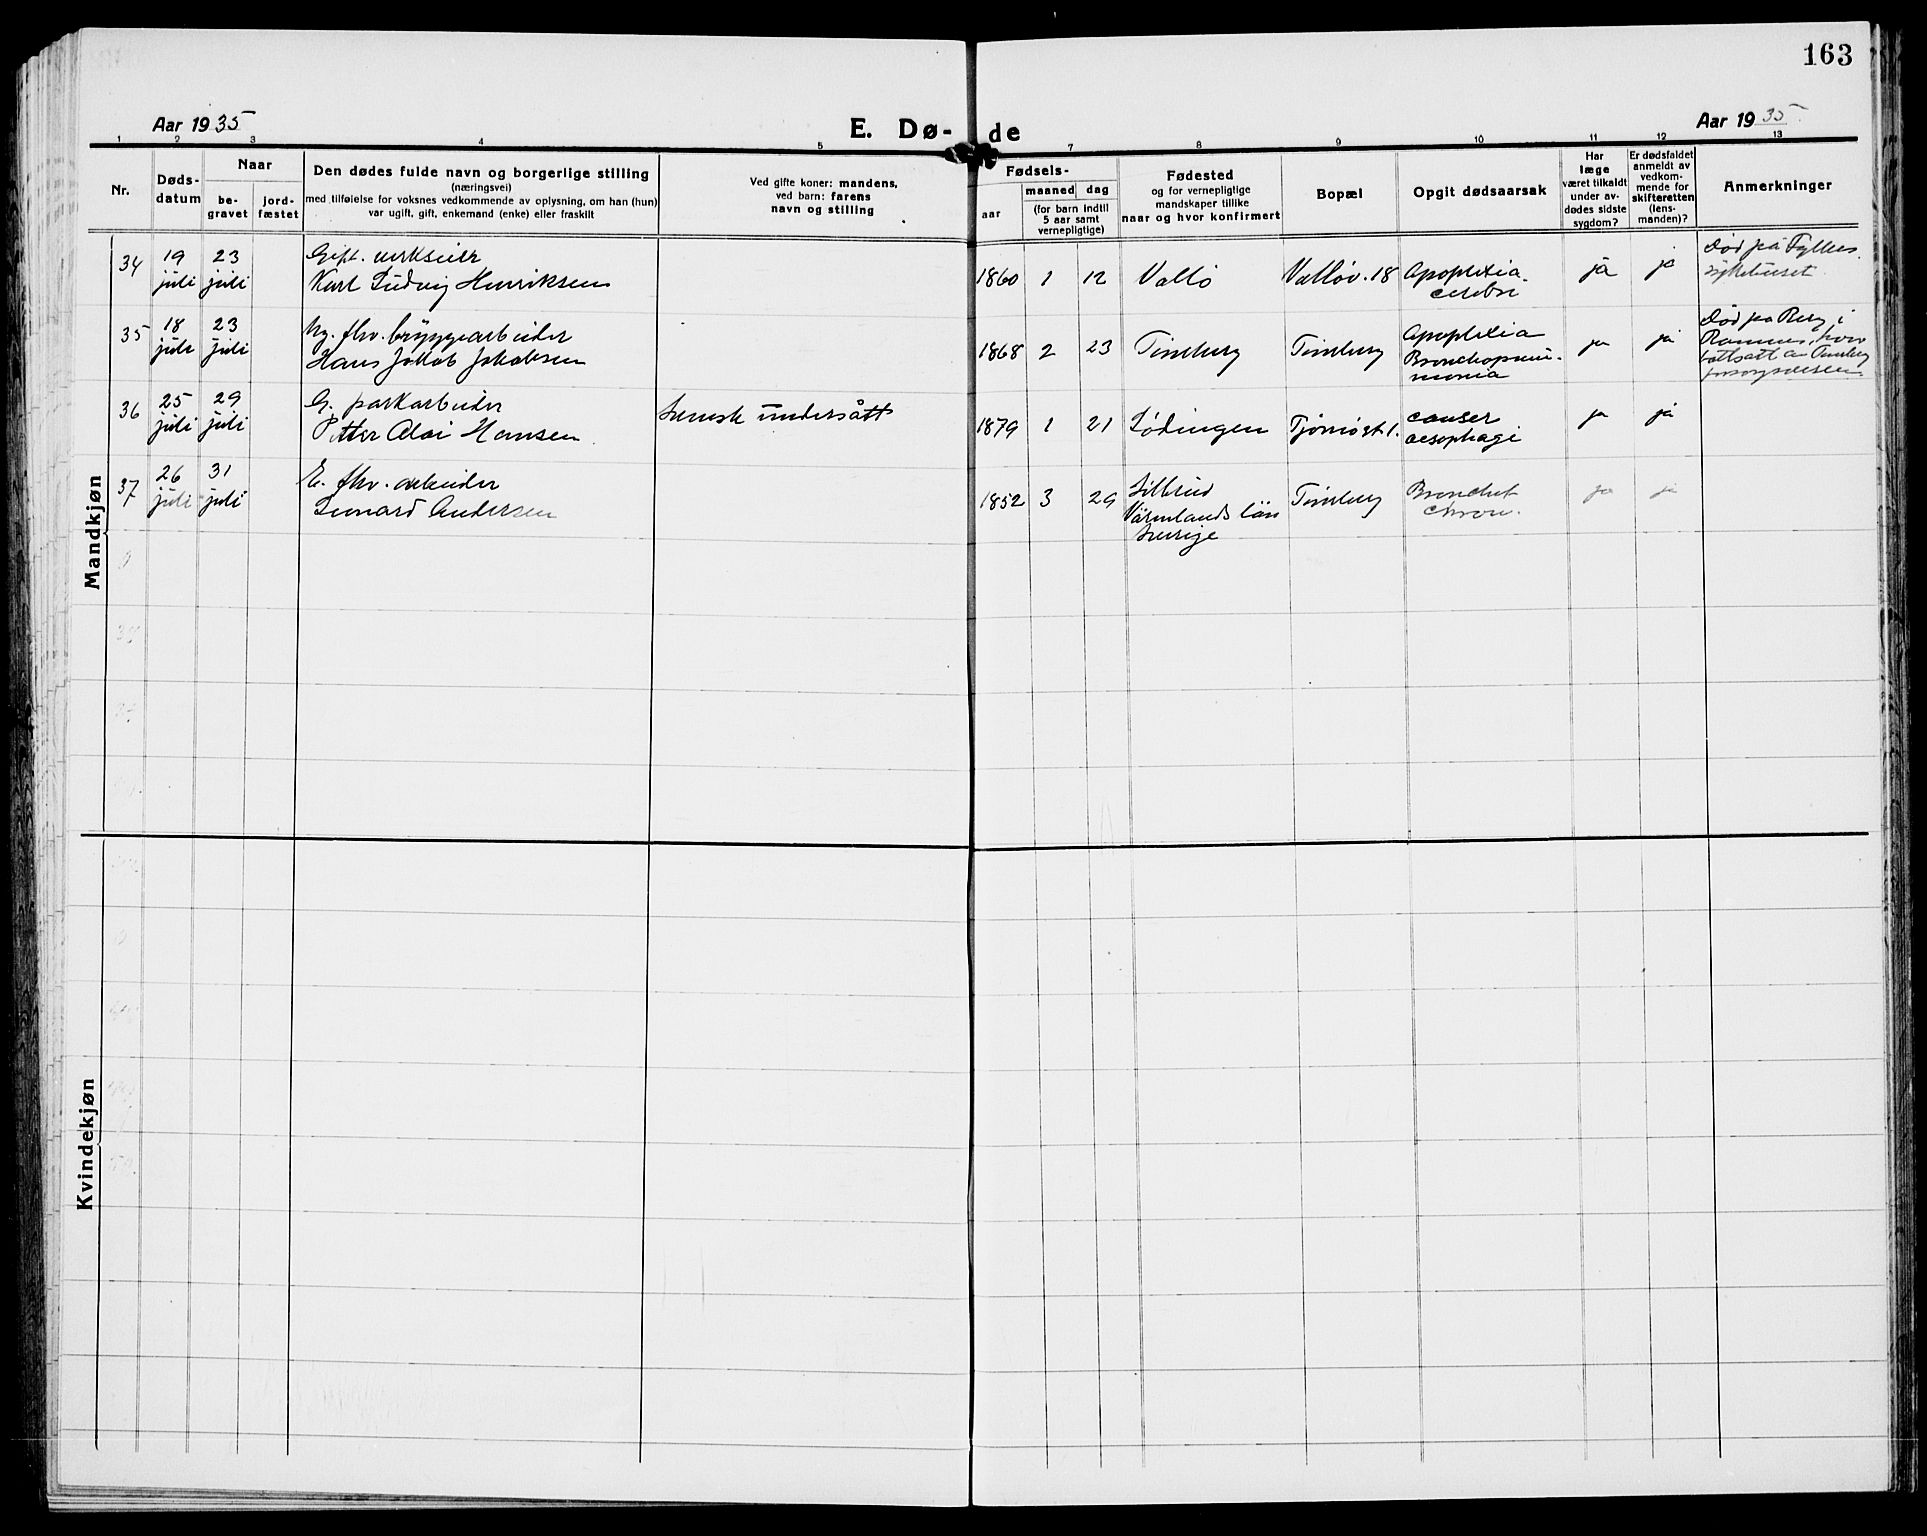 163
Aar 1935
E. Dø- de
Aar 1935
1 2 3 4 5 7 8 9 10 11 12 13
Nr.
Døds-
datum
Naar
be-
gravet
jord-
fæstet
Den dødes fulde navn og borgerlige stilling
(næringsvei)
med tilføielse for voksnes vedkommende av oplysning, om han (hun)
var ugift, gift, enkemand (enke) eller fraskilt
Ved gifte koner: mandens,
ved barn: farens
navn og stilling
Fødsels-
aar
maaned dag
(for barn indtil
5 aar samt
vernepligtige)
Fødested
og for vernepligtige
mandskaper tillike
naar og hvor konfirmert
Bopæl
Opgit dødsaarsak
Har
læge
været tilkaldt
under av-
dødes sidste
sygdom?
Er dødsfaldet
anmeldt av
vedkom-
mende for
skifteretten
(lens-
manden)?
Anmerkninger
Mandkjøn
34
19
juli
23
juli
Gift. verkseier
Karl Ludvig Henriksen
1860 1 12
Vallö
Valløv. 18
Apoplexia
cerebri
ja
ja
Død på Fylkes
sykehuset
35
18
juli
23
juli
Ug. fhv. bryggearbeider
Hans Jakob Jakobsen
1868 2 23
Tönsberg
Tönsberg
Apoplexia
Bronchopneu-
monia
ja
ja
Død på Berg i
Ramnes, hvor
bortsatt av Tønsberg
forsorgsvesen
36
25
juli
29
juli
G. parkarbeider
Petter Aloi Hansen
svensk undersått
1879 1 21
Lødingen
Tjömøgt. 1.
canser
oesophagi
ja
ja
37
26
juli
31
juli
E. fhv. arbeider
Leonard Andersen
1852 3 29
Värmlands län
Sverige
Tönsberg
Bronchit
chron.
ja
ja
Kvindekjøn